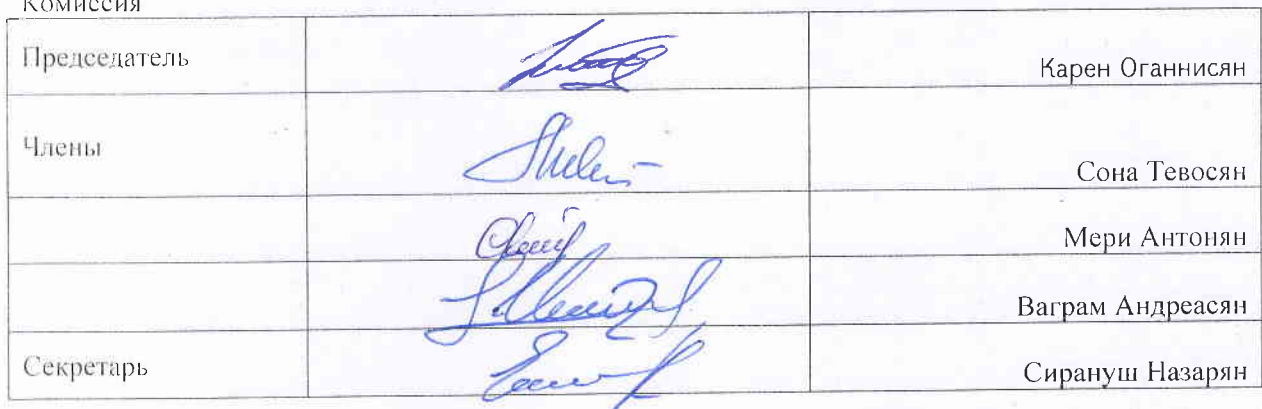 Комиссия
Председатель Карен Оганнисян
Члены Сона Тевосян
Мери Антонян
Ваграм Андреасян
Секретарь Сирануш Назарян